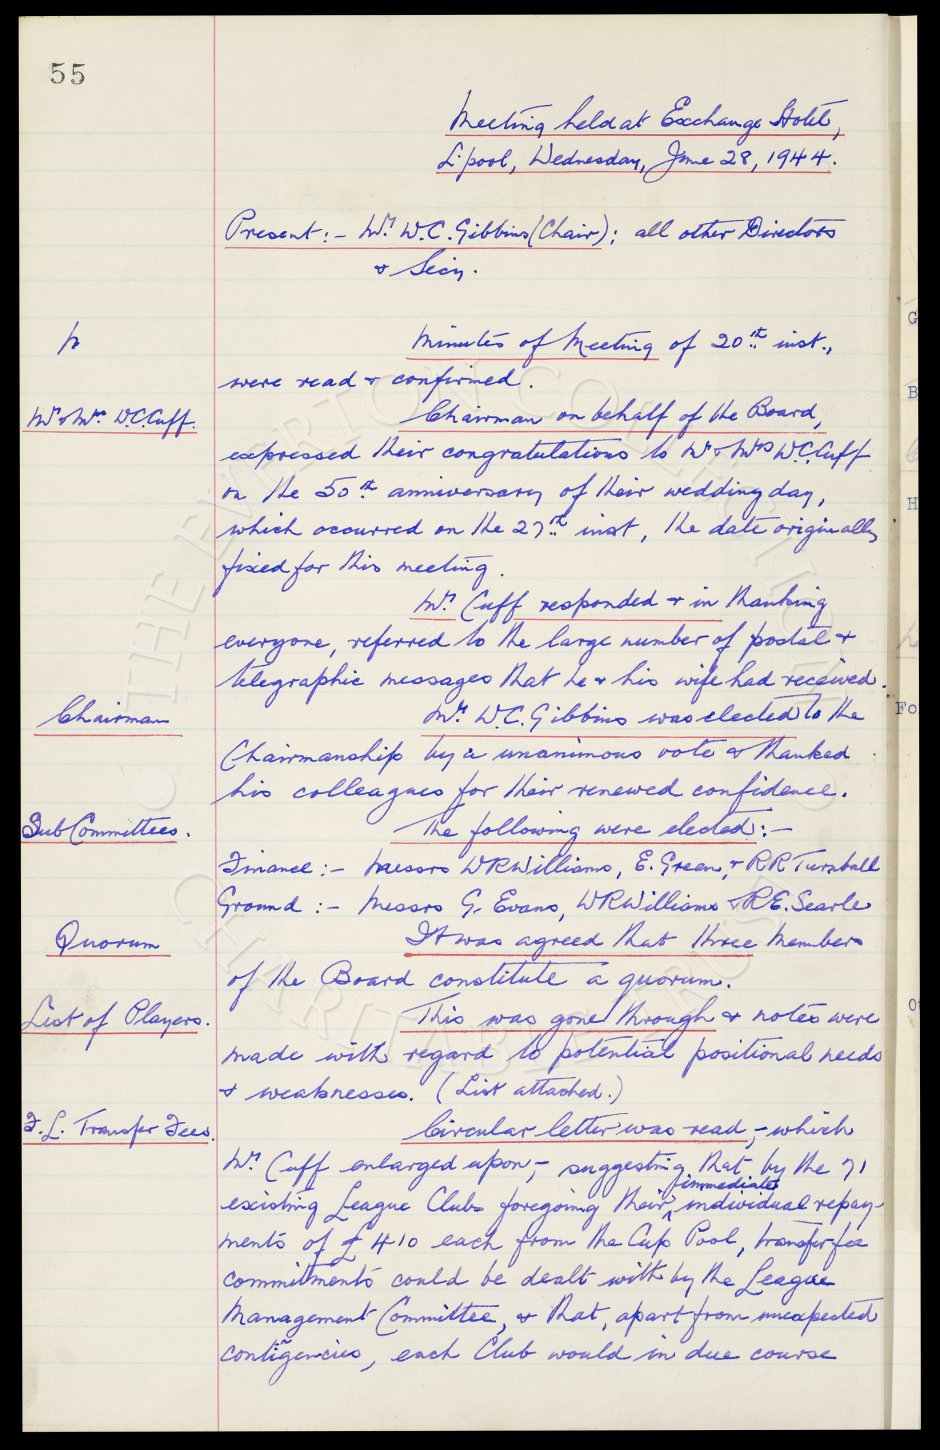 55
Meeting held at Exchange Hotel,
L'pool, Wednesday, June 28, 1944.
Present:- Mr. W.C. Gibbins (Chair); all other Directors
& Secy.
Minutes of Meeting of 20th inst.,
were read & confirmed.
Mr & Mrs W.C. Cuff.
Chairman on behalf of the Board,
expressed their congratulations to Mr & Mrs W.C. Cuff
on the 50th anniversary of their wedding day,
which occurred on the 27th inst, the date originally
fixed for this meeting.
Mr. Cuff responded & in thanking
everyone, referred to the large number of postal &
telegraphic messages that he & his wife had received.
Chairman
Mr. W.C. Gibbins was elected to the
Chairmanship by a unanimous vote & thanked
his colleagues for their renewed confidence.
Sub Committees.
The following were elected:-
Finance:- Messrs W R Williams, E. Green, & R R Turnbull
Ground:- Messrs G. Evans, W R Williams & R.E. Searle
Quorum
It was agreed that three members
of the Board constitute a quorum.
List of Players.
This was gone through & notes were
made with regard to potential positional needs
& weaknesses. (List attached.)
F.L. Transfer Fees.
Circular letter was read,- which
Mr. Cuff enlarged upon,- suggesting that by the 71
existing League Clubs foregoing their immediate individual repay-
ments of £410 each from the Cup Pool, transfer fee
committments could be dealt with by the League
Management Committee, & that, apart from unexpected
contigencies, each Club would in due course
THE EVERTON COLLECTION
CHARITABLE TRUST
G
B
H
Fo